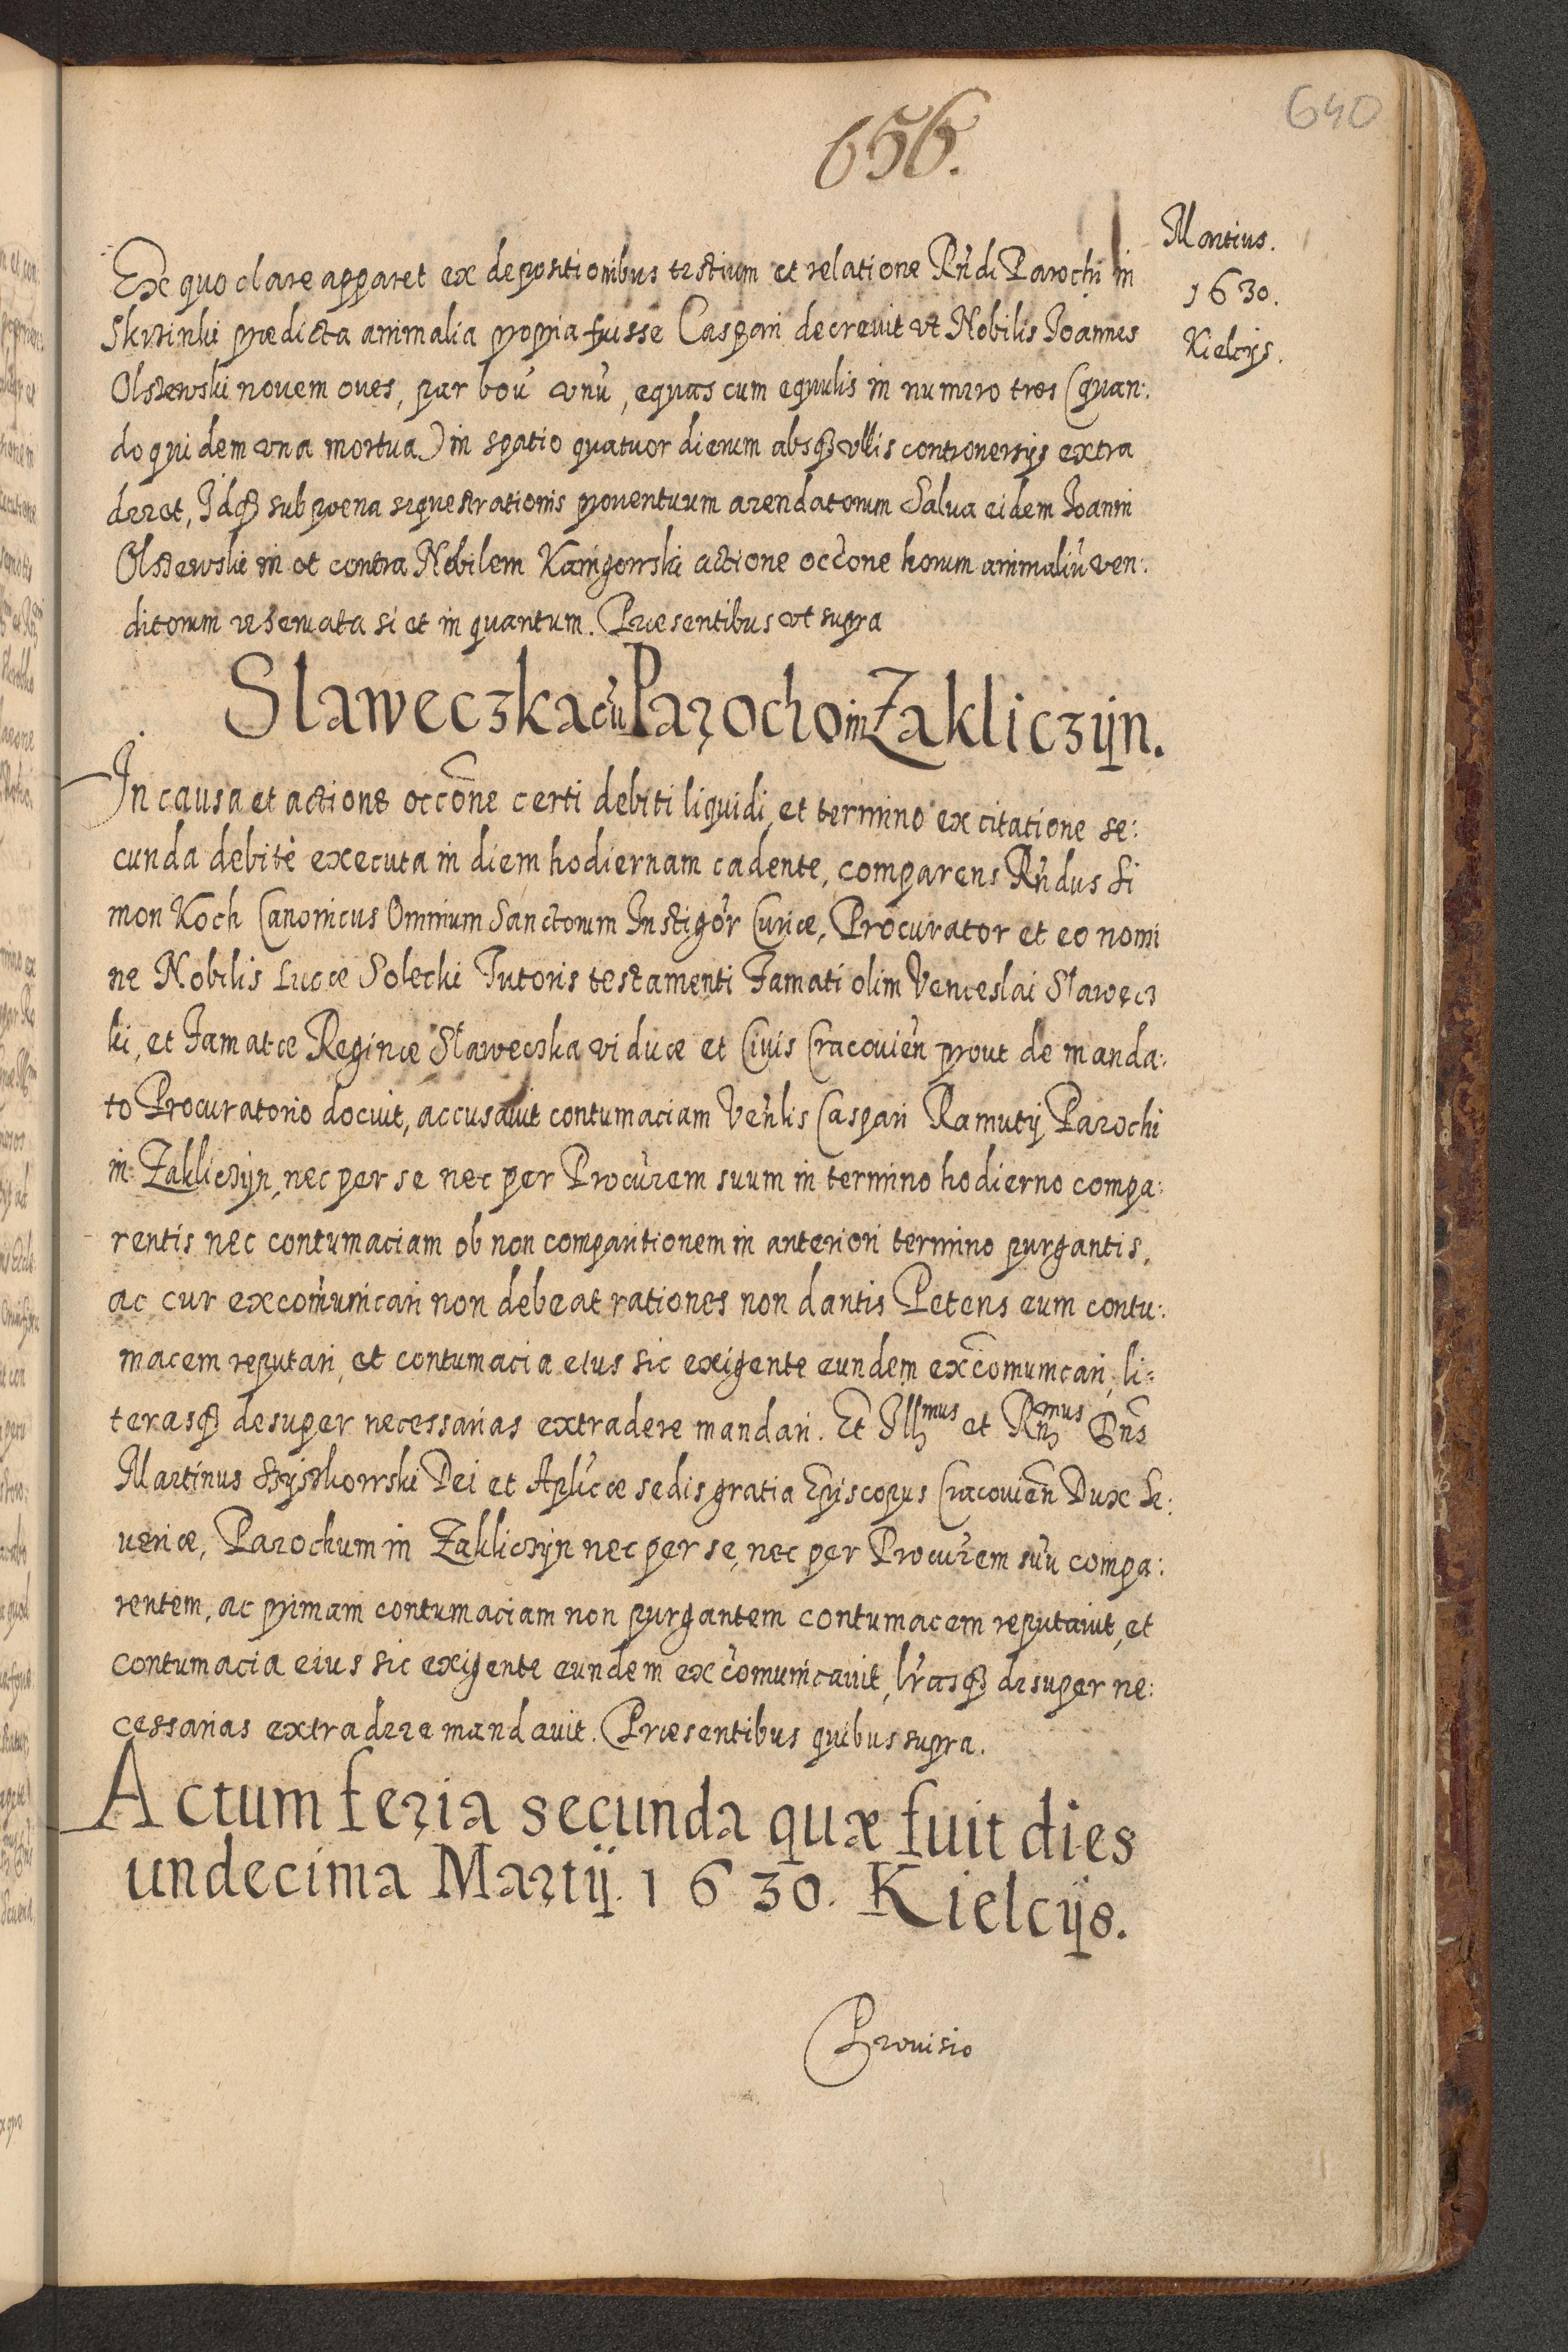 640
656.
Martius.
1630.
Kielcijs.
Ex quo clare apparet ex depositionibus testium et relatione Rñdi Parochi in
Skrzinki prædicta animalia propria fuisse Caspari decrevit vt Nobilis Joannes
Olszewski novem oves, par boũ vnũ, equas cum equulis in numero tres (quan:
doquidem vna mortua) in spatio quatuor dierum absq vllis controversijs extra
deret, Idq sub poena sequestrationis proventuum arendatorum Salva eidem Joanni
Olszewski in et contra Nobilem Kamgowski actione occõne horum animaliũ ven:
ditorum reservata si et in quantum. Præsentibus vt supra
Slaweczka cũ Parocho in Zakliczÿn.
In causa et actione occõne certi debiti liquidi, et termino ex citatione se:
cunda debitè executa in diem hodiernam cadente, comparens Rñdus Si
mon Koch Canonicus Omnium Sanctorum Instigõr Curiæ, Procurator et eo nomi
ne Nobilis Lucæ Solecki Tutoris testamenti Famati olim Venceslai Sławecz
ki, et Famatæ Reginæ Sławeczka viduæ et Civis Cracovieñ prout de manda:
to Procuratorio docuit, accusavit contumaciam Veñlis Caspari Ramutij Parochi
in Zakliczÿn, nec per se nec per Procũrem suum in termino hodierno compa:
rentis nec contumaciam ob non comparitionem in anteriori termino purgantis,
ac cur excom̃unicari non debeat rationes non dantis Petens eum contu:
macem reputari, et contumacia eius sic exigente eundem exc̃omunicari, li=
terasq desuper necessarias extradere mandari. Et Illmus et Rñmus Dñs
Martinus Szÿszkowski Dei et Aplicæ sedis gratia Episcopus Cracovieñ Dux Se:
veriæ, Parochum in Zakliczÿn nec per se, nec per Procũrem suũ compa:
rentem, ac primam contumaciam non purgantem contumacem reputavit, et
contumacia eius sic exigente eundem exc̃omunicavit, lr̃asq desuper ne:
cessarias extradere mandavit. Præsentibus quibus supra.
Actum feria secunda quæ fuit dies
undecima Martÿ. 1630. Kielcÿs.
Provisio